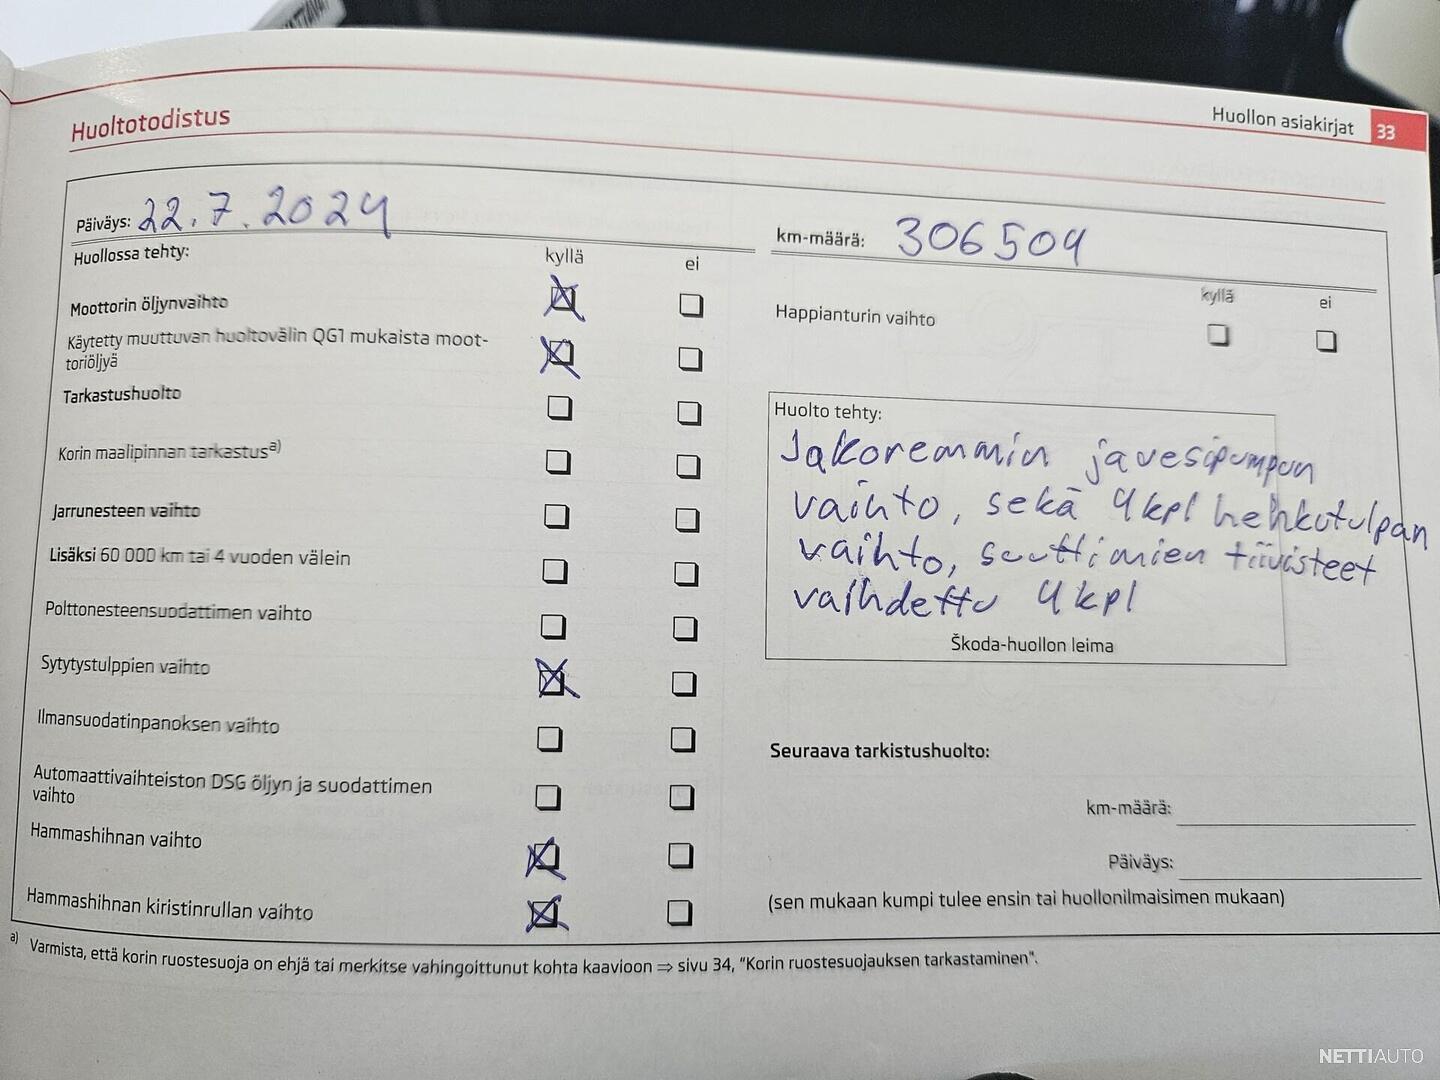 Huoltotodistus
Huollon asiakirjat 33
Päiväys: 22.7.2024
km-määrä: 306504
Huollossa tehty:
kyllä ei
Moottorin öljynvaihto
Käytetty muuttuvan huoltovälin QG1 mukaista moot-
toriöljyä
Tarkastushuolto
Korin maalipinnan tarkastus a)
Jarrunesteen vaihto
Lisäksi 60 000 km tai 4 vuoden välein
Polttonesteensuodattimen vaihto
Sytytystulppien vaihto
Ilmansuodatinpanoksen vaihto
Automaattivaihteiston DSG öljyn ja suodattimen
vaihto
Hammashihnan vaihto
Hammashihnan kiristinrullan vaihto
kyllä ei
Happianturin vaihto
Huolto tehty:
Jakoremmin ja vesipumpun
vaihto, sekä 4kpl hehkutulpan
vaihto, suuttimien tiivisteet
vaihdettu 4kpl
Škoda-huollon leima
Seuraava tarkistushuolto:
km-määrä:
Päiväys:
(sen mukaan kumpi tulee ensin tai huollonilmaisimen mukaan)
a) Varmista, että korin ruostesuoja on ehjä tai merkitse vahingoittunut kohta kaavioon ⇒ sivu 34, "Korin ruostesuojauksen tarkastaminen".
NETTIAUTO